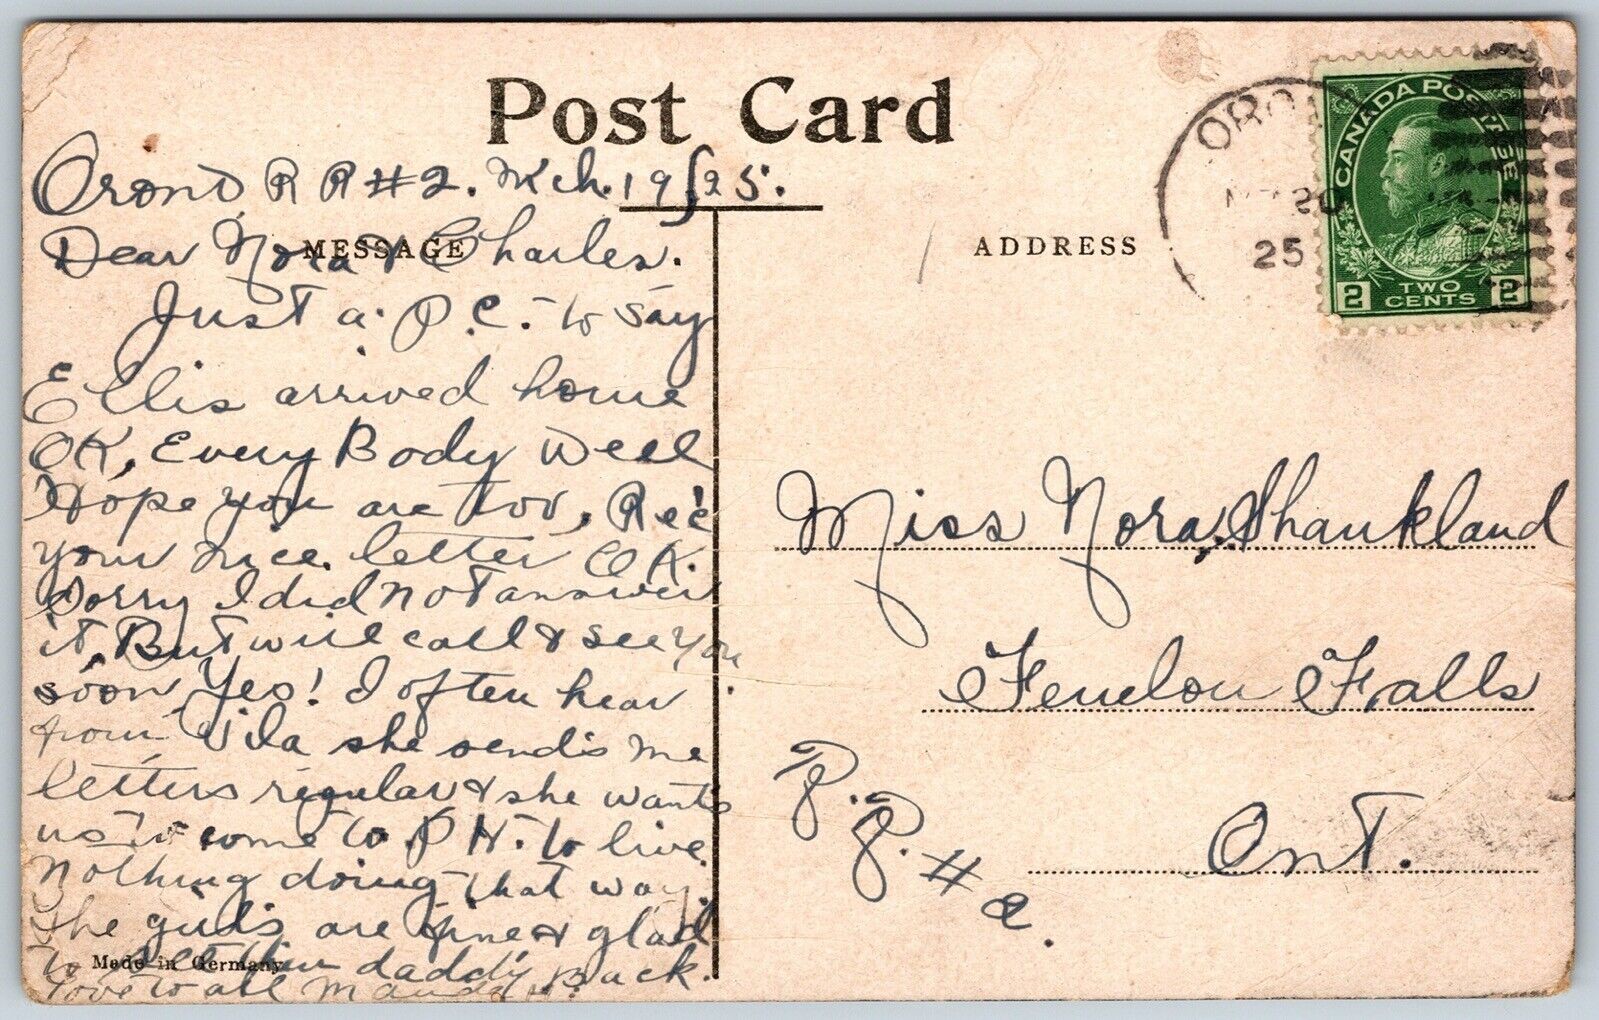 Post Card
Orono R R #2. Mch. 19/25.
MESSAGE
Dear Nora & Charles.
Just a. P.C. to say
Ellis arrived home
OK, Every Body Well
Hope you are too, Rec'd
your nice letter OK.
Sorry I did not answer
it, But will call & see you
soon, Yes! I often hear
from Vila she sends me
letters regular & she wants
us to come to P H. to live.
Nothing doing that way.
The girls are fine & glad
to see their daddy Back.
Love to all
Made in Germany
ADDRESS
ORO
20
25
CANADA POSTAGE
2 TWO CENTS 2
Miss Nora Shankland
Fenelon Falls
R.
R. #2.
Ont.